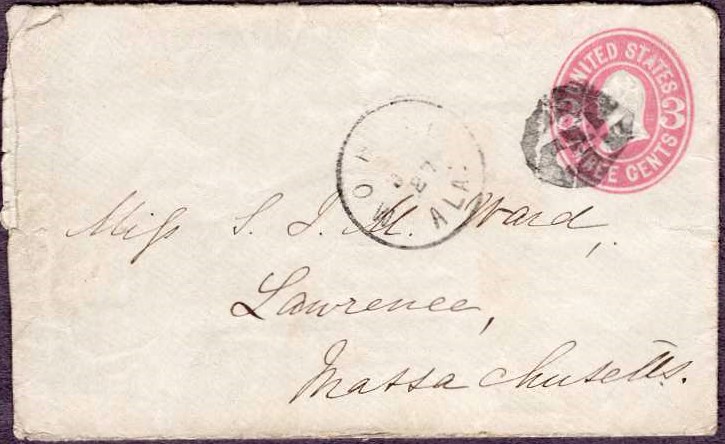 UNITED STATES
3
THREE CENTS
ALA.
27
Miss S. J. M. Ward,
Lawrence,
Massachusetts.